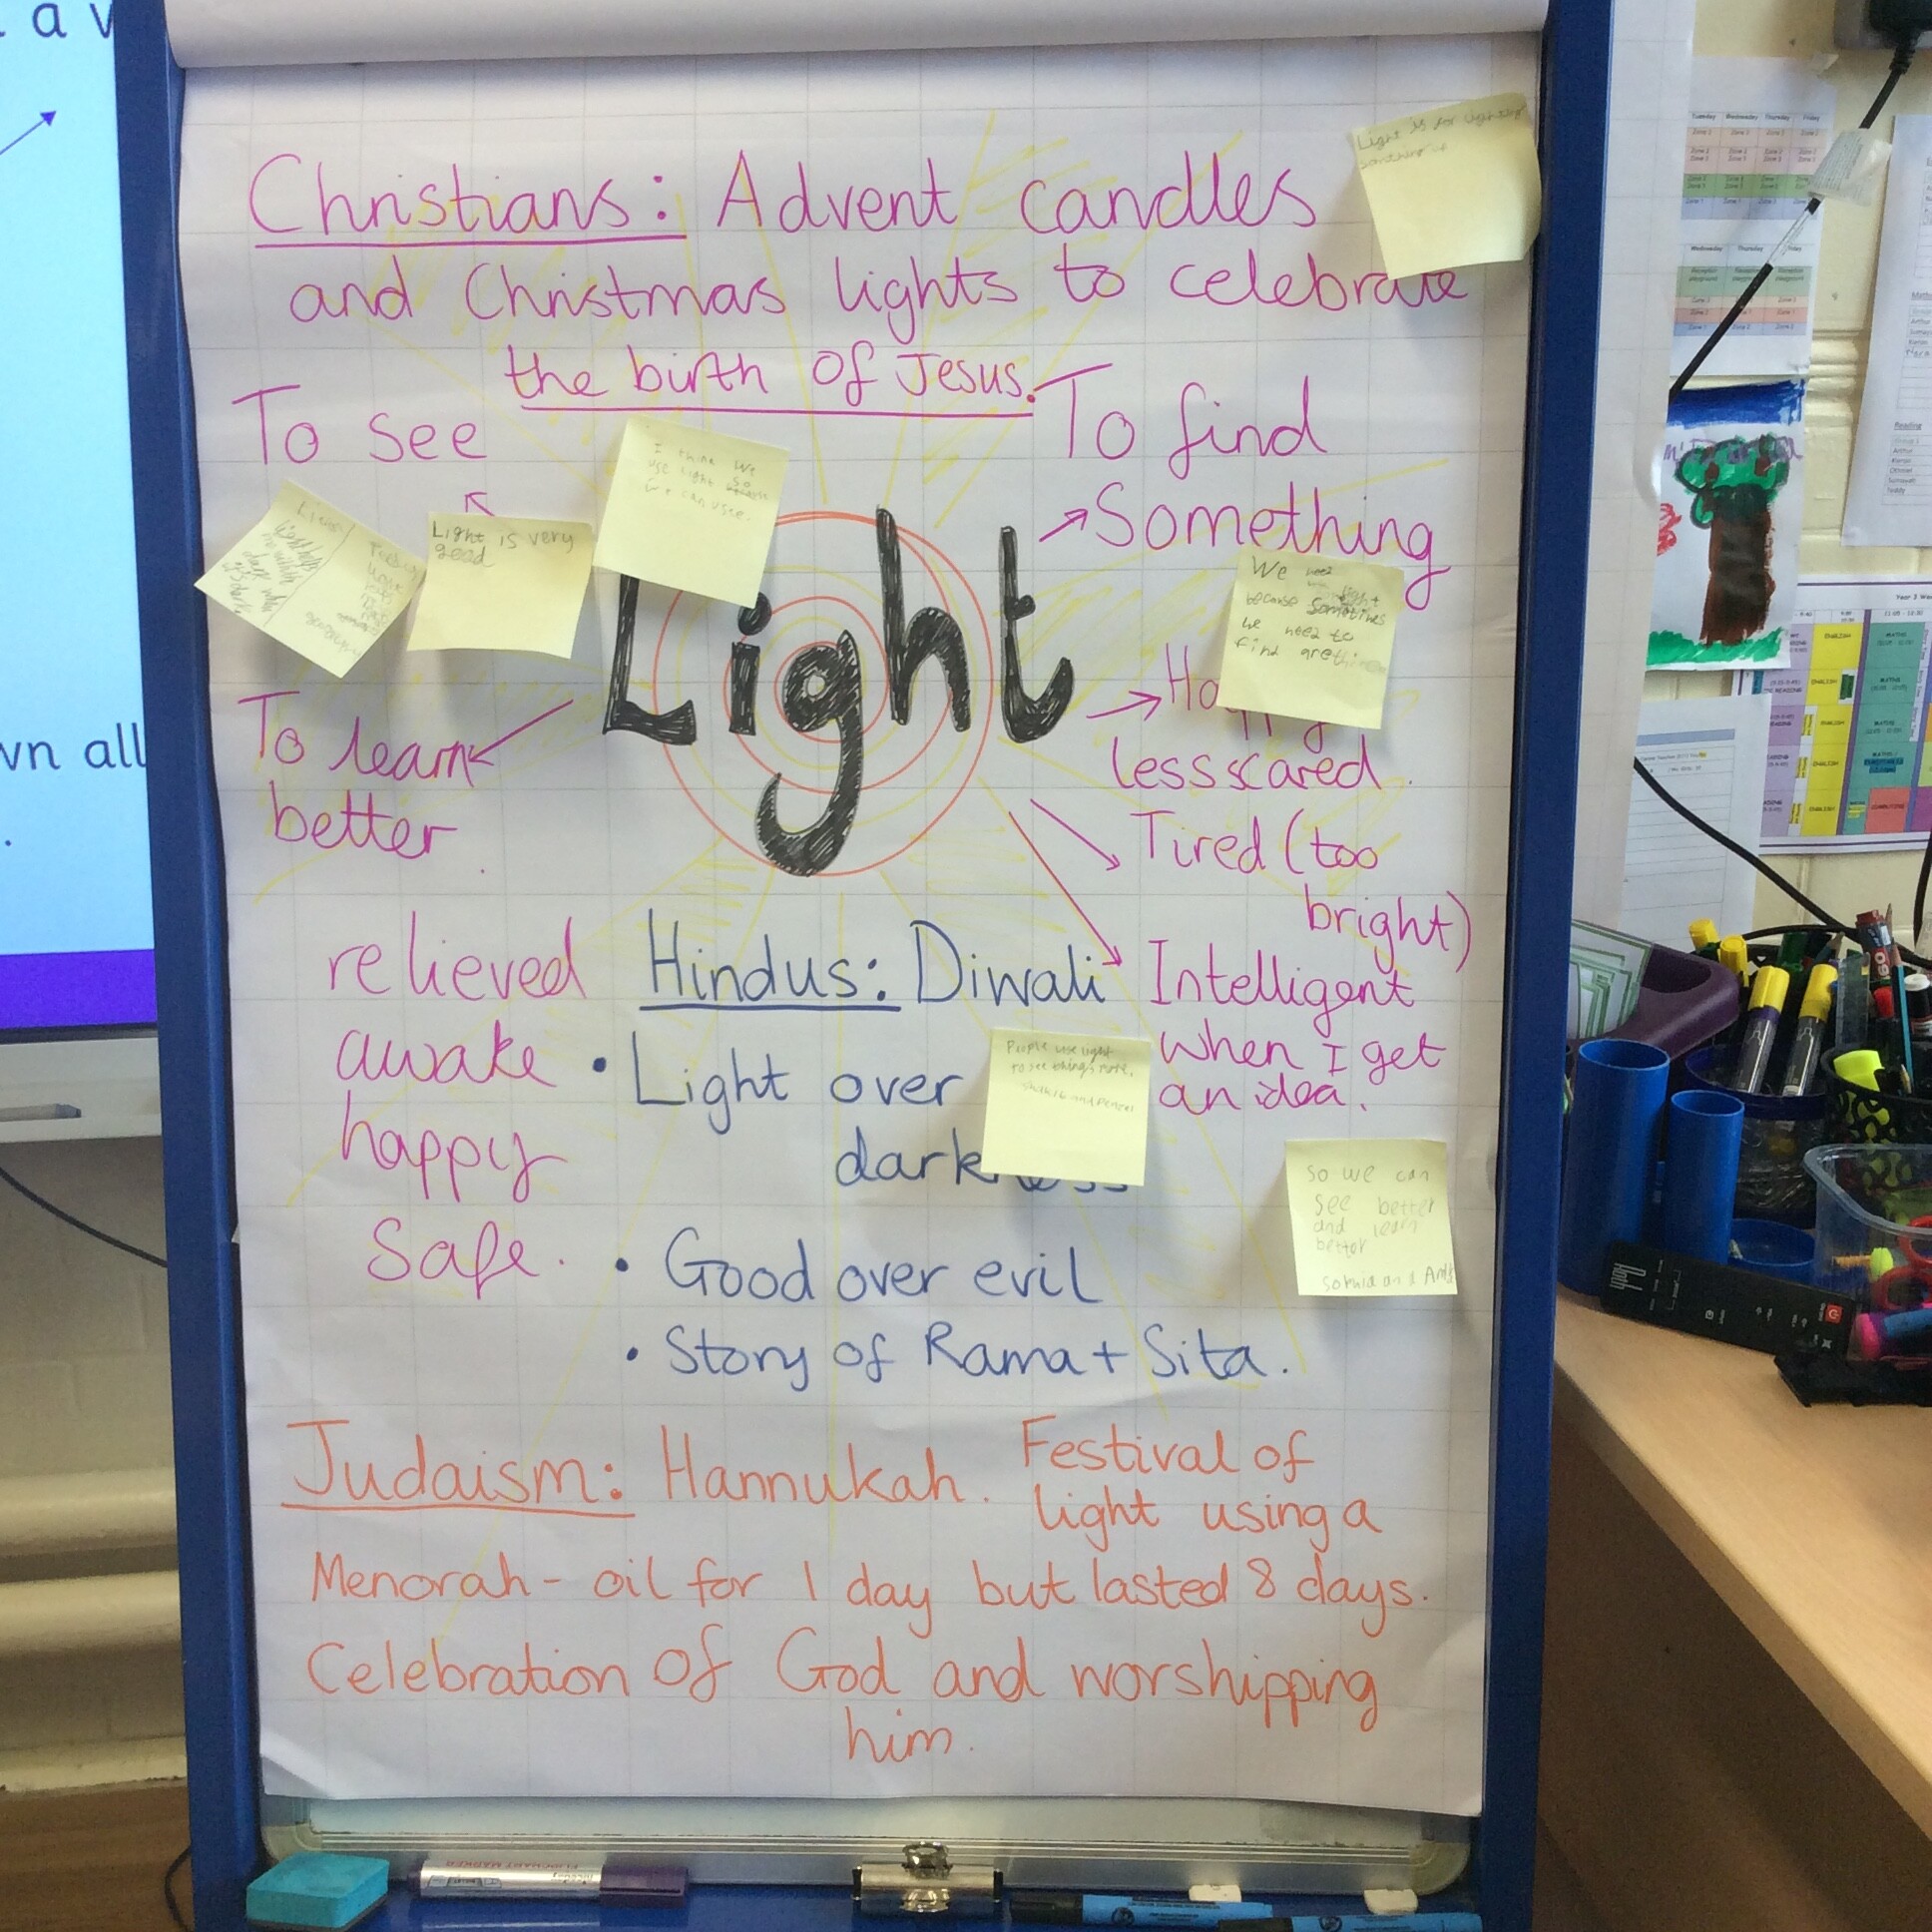 Christians: Advent candles
and Christmas lights to celebrate
the birth of Jesus.
Light is for lighting
something up
To see
To find
Something
I think We
use light so
because
we can see.
Light is very
good
We need
light
because Sometimes
we need to
find
Light
To learn
better.
Happy
less scared.
Tired (too
bright)
Intelligent
when I get
an idea.
relieved
awake
happy
Safe.
Hindus: Diwali
• Light over
darkness
People use light
to see things more.
• Good over evil
• Story of Rama + Sita.
so we can
see better
and learn
better
Judaism: Hannukah. Festival of
light using a
Menorah - oil for 1 day but lasted 8 days.
Celebration of God and worshipping
him.
wn all
Tuesday Wednesday Thursday Friday
Wednesday Thursday Friday
Reading
ENGLISH
MATHS